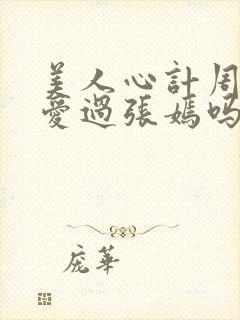 美人心計周
愛過張嫣嗎
庞華